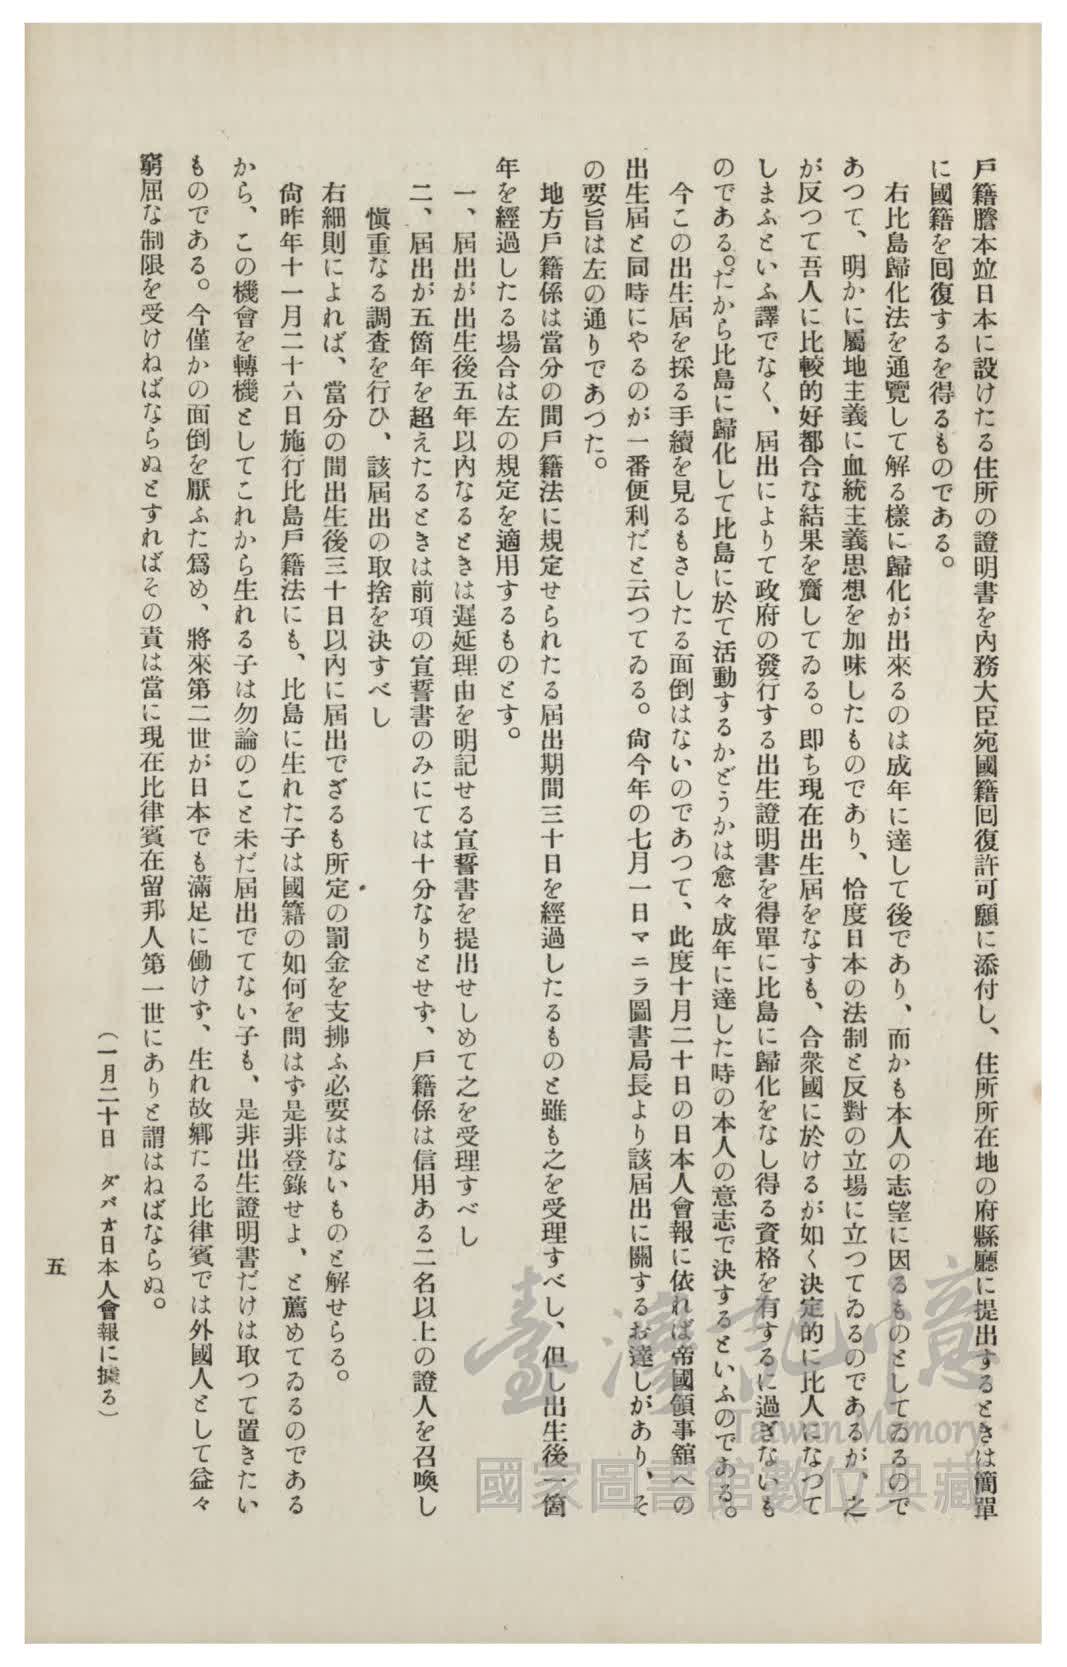 戶籍謄本竝日本に設けたる住所の證明書を內務大臣宛國籍囘復許可願に添付し、住所所在地の府縣廳に提出するときは簡單
に國籍を囘復するを得るものである。
右比島歸化法を通覽して解る樣に歸化が出來るのは成年に達して後であり、而かも本人の志望に因るものとしてゐるので
あつて、明かに屬地主義に血統主義思想を加味したものであり、恰度日本の法制と反對の立場に立つてゐるのであるが、之
が反つて吾人に比較的好都合な結果を齎してゐる。卽ち現在出生屆をなすも、合衆國に於けるが如く決定的に比人になつて
しまふといふ譯でなく、屆出によりて政府の發行する出生證明書を得單に比島に歸化をなし得る資格を有するに過ぎないも
のである。だから比島に歸化して比島に於て活動するかどうかは愈々成年に達した時の本人の意志で決するといふのである。
今この出生屆を採る手續を見るもさしたる面倒はないのであつて、此度十月二十日の日本人會報に依れば帝國領事舘への
出生屆と同時にやるのが一番便利だと云つてゐる。尙今年の七月一日マニラ圖書局長より該屆出に關するお達しがあり、そ
の要旨は左の通りであつた。
地方戶籍係は當分の間戶籍法に規定せられたる屆出期間三十日を經過したるものと雖も之を受理すべし、但し出生後一箇
年を經過したる場合は左の規定を適用するものとす。
一、屆出が出生後五年以內なるときは遲延理由を明記せる宣誓書を提出せしめて之を受理すべし
二、屆出が五箇年を超えたるときは前項の宣誓書のみにては十分なりとせず、戶籍係は信用ある二名以上の證人を召喚し
愼重なる調査を行ひ、該屆出の取捨を決すべし
右細則によれば、當分の間出生後三十日以內に屆出でざるも所定の罰金を支拂ふ必要はないものと解せらる。
尙昨年十一月二十六日施行比島戶籍法にも、比島に生れた子は國籍の如何を問はず是非登錄せよ、と薦めてゐるのである
から、この機會を轉機としてこれから生れる子は勿論のこと未だ屆出でてない子も、是非出生證明書だけは取つて置きたい
ものである。今僅かの面倒を厭ふた爲め、將來第二世が日本でも滿足に働けず、生れ故鄕たる比律賓では外國人として益々
窮屈な制限を受けねばならぬとすればその責は當に現在比律賓在留邦人第一世にありと謂はねばならぬ。
（一月二十日　ダバオ日本人會報に據る）
五
臺灣記憶
Taiwan Memory
國家圖書館數位典藏